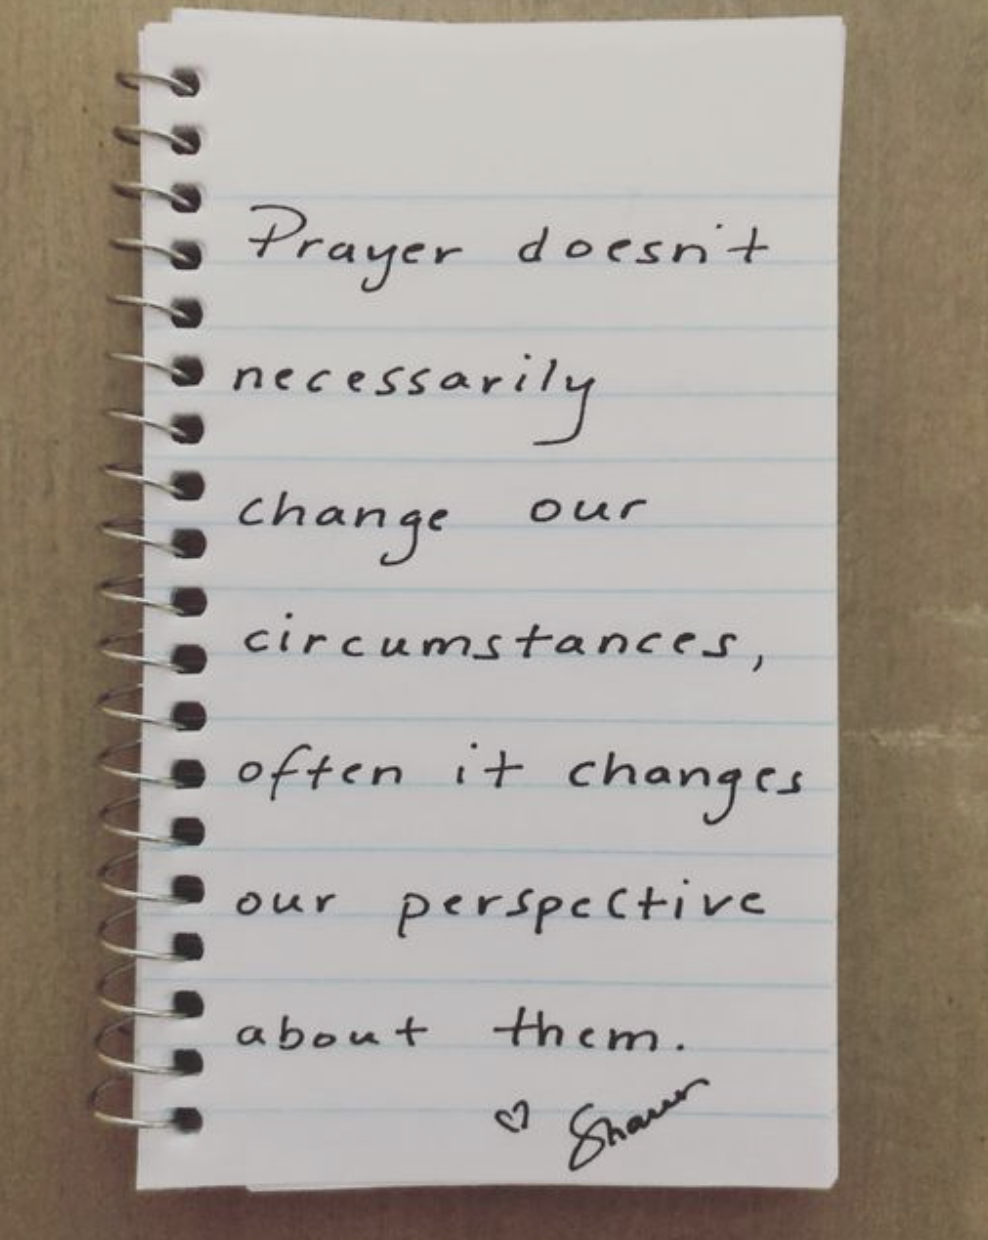 Prayer doesn't
necessarily
change our
circumstances,
often it changes
our perspective
about them.
♡